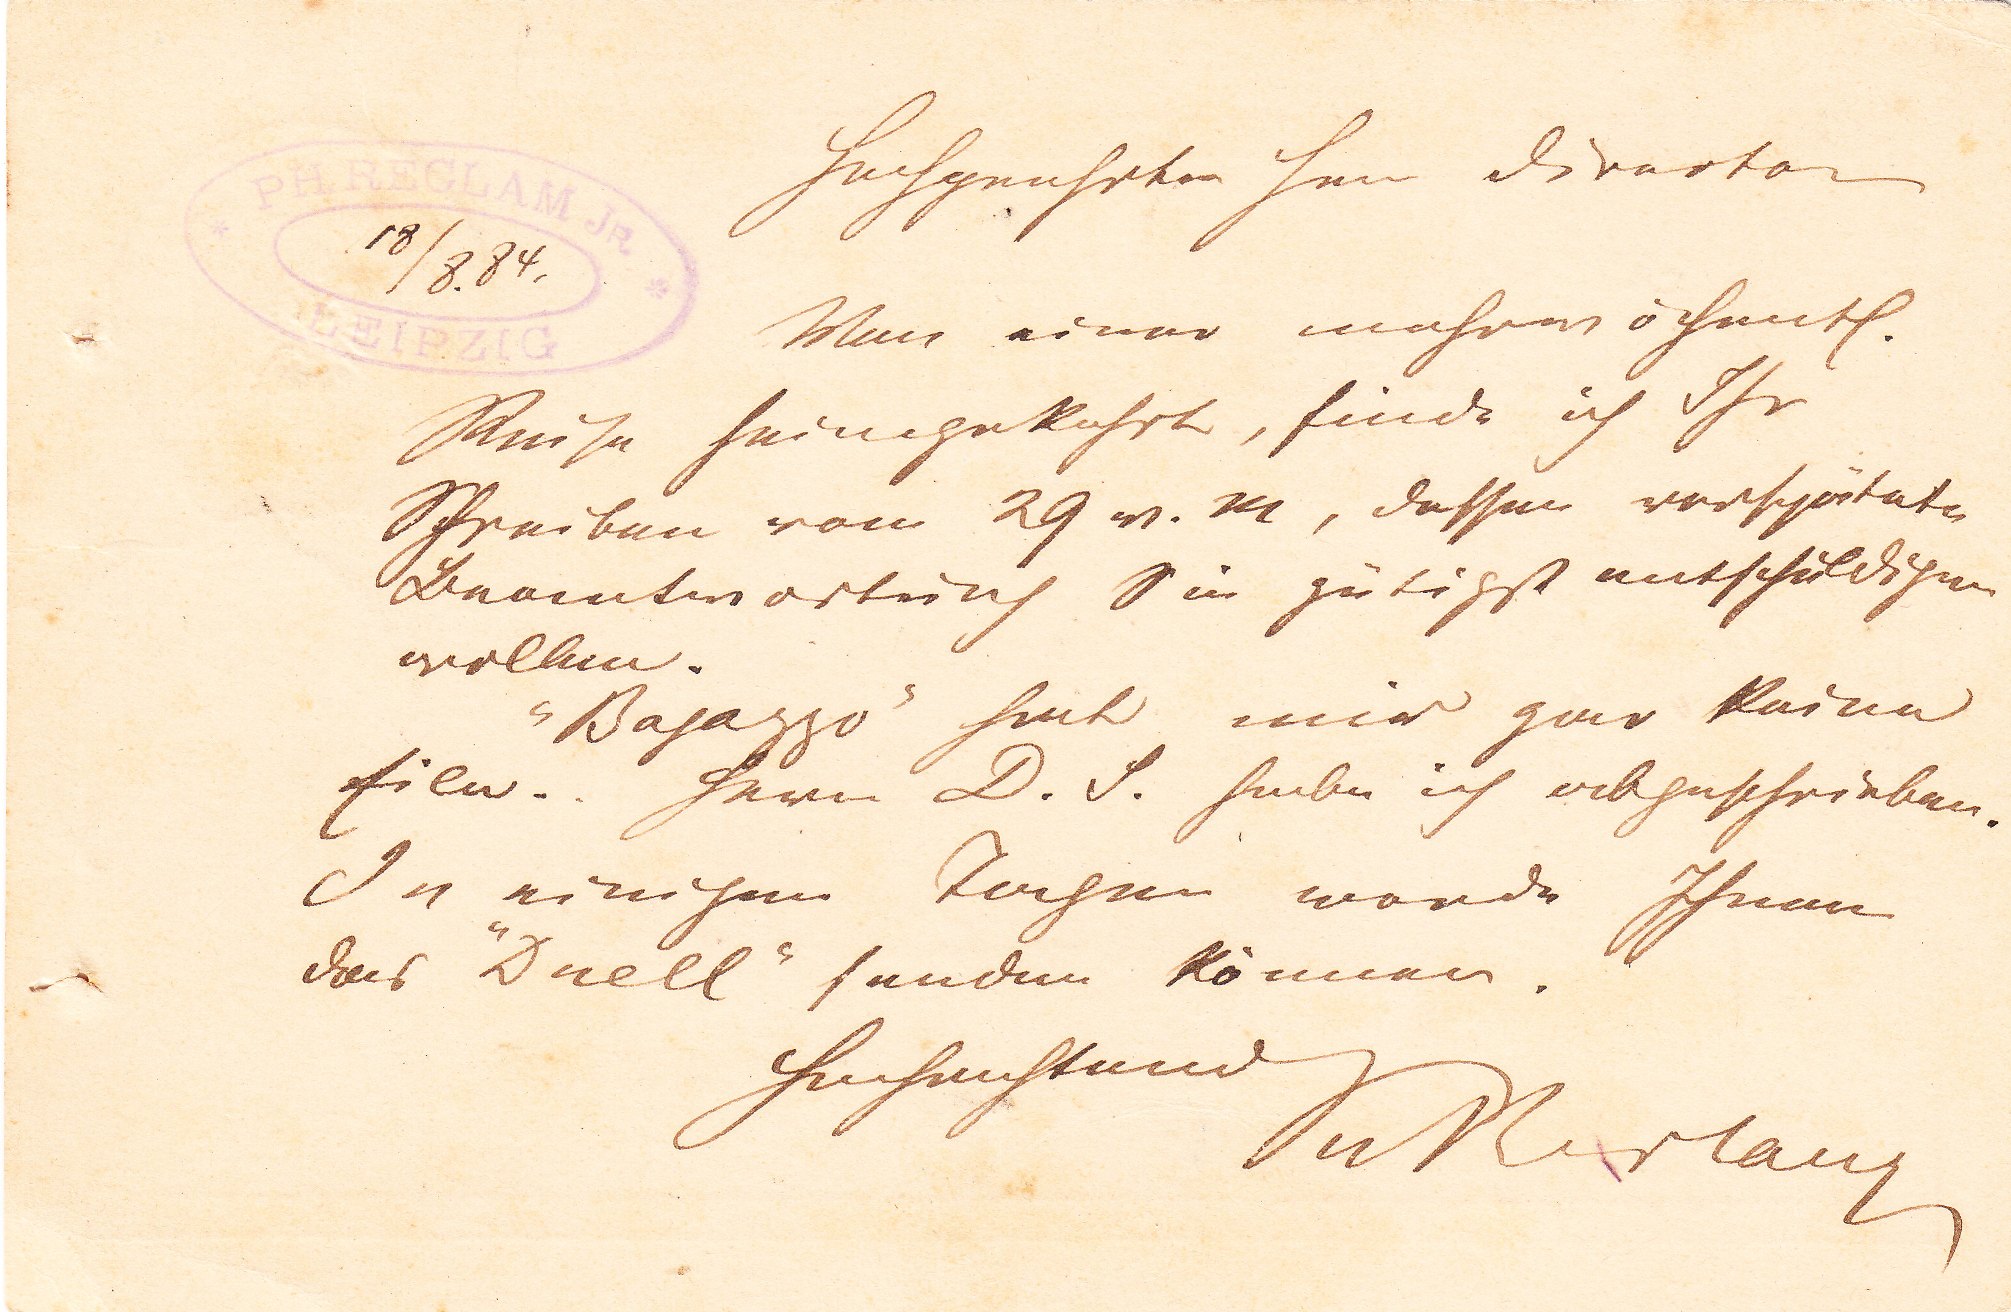 PH. RECLAM JR.
18/8.84.
LEIPZIG
Hochgeehrter Herr Director
Von einer mehrwöchentl.
Reise heimgekehrt, finde ich Ihr
Schreiben vom 29 v. M, dessen verspätete
Beantwortung Sie gütigst entschuldigen
wollen.
"Bajazzo" hat mir gar keine
Eile. Herrn D. S. habe ich abgeschrieben.
In einigen Tagen werde Ihnen
das "Duell" senden können.
Hochachtend